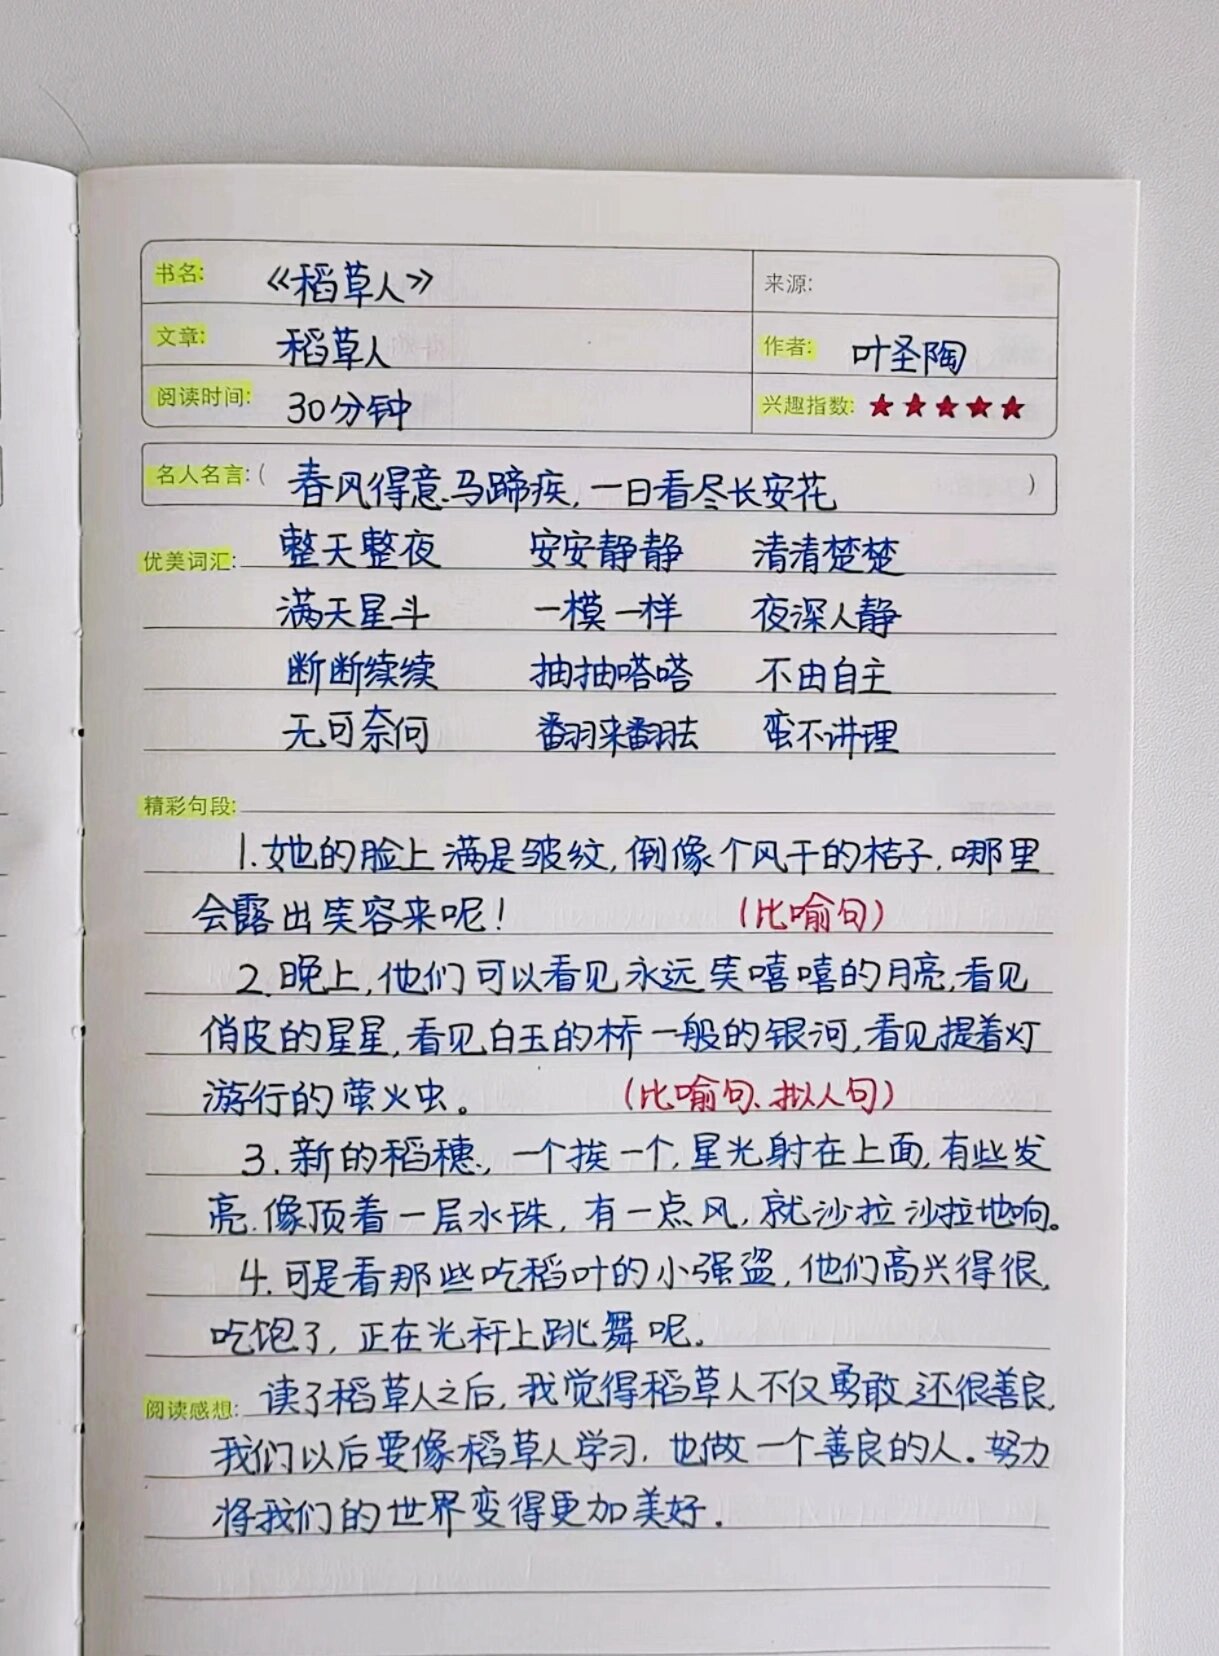 书名: 《稻草人》 来源:
文章: 稻草人 作者: 叶圣陶
阅读时间: 30分钟 兴趣指数: ★★★★★
名人名言:( 春风得意马蹄疾,一日看尽长安花 )
优美词汇: 整天整夜 安安静静 清清楚楚
满天星斗 一模一样 夜深人静
断断续续 抽抽嗒嗒 不由自主
无可奈何 翻来翻去 蛮不讲理
精彩句段:
1.她的脸上满是皱纹,倒像个风干的桔子,哪里
会露出笑容来呢! (比喻句)
2.晚上,他们可以看见永远笑嘻嘻的月亮,看见
俏皮的星星,看见白玉的桥一般的银河,看见提着灯
游行的萤火虫。 (比喻句、拟人句)
3.新的稻穗,一个挨一个,星光射在上面,有些发
亮,像顶着一层水珠,有一点风,就沙拉沙拉地响。
4.可是看那些吃稻叶的小强盗,他们高兴得很,
吃饱了,正在光秆上跳舞呢。
阅读感想: 读了稻草人之后,我觉得稻草人不仅勇敢,还很善良,
我们以后要像稻草人学习,也做一个善良的人。努力
将我们的世界变得更加美好.